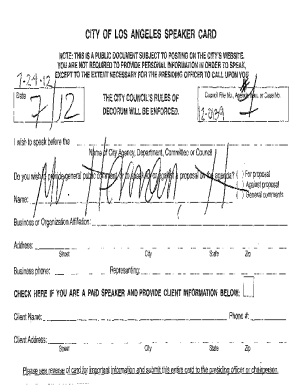 CITY OF LOS ANGELES SPEAKER CARD
NOTE: THIS IS A PUBLIC DOCUMENT SUBJECT TO POSTING ON THE CITY'S WEBSITE.
YOU ARE NOT REQUIRED TO PROVIDE PERSONAL INFORMATION IN ORDER TO SPEAK,
EXCEPT TO THE EXTENT NECESSARY FOR THE PRESIDING OFFICER TO CALL UPON YOU
Date
THE CITY COUNCIL'S RULES OF
DECORUM WILL BE ENFORCED.
Council File No., Agenda Item, or Case No.
I wish to speak before the
Name of City Agency, Department, Committee or Council
Do you wish to provide general public comment, or to speak for or against a proposal on the agenda? ( ) For proposal
( ) Against proposal
Name: ( ) General comments
Business or Organization Affiliation:
Address:
Street City State Zip
Business phone: Representing:
CHECK HERE IF YOU ARE A PAID SPEAKER AND PROVIDE CLIENT INFORMATION BELOW:
Client Name: Phone #:
Client Address:
Street City State Zip
Please see reverse of card for important information and submit this entire card to the presiding officer or chairperson.